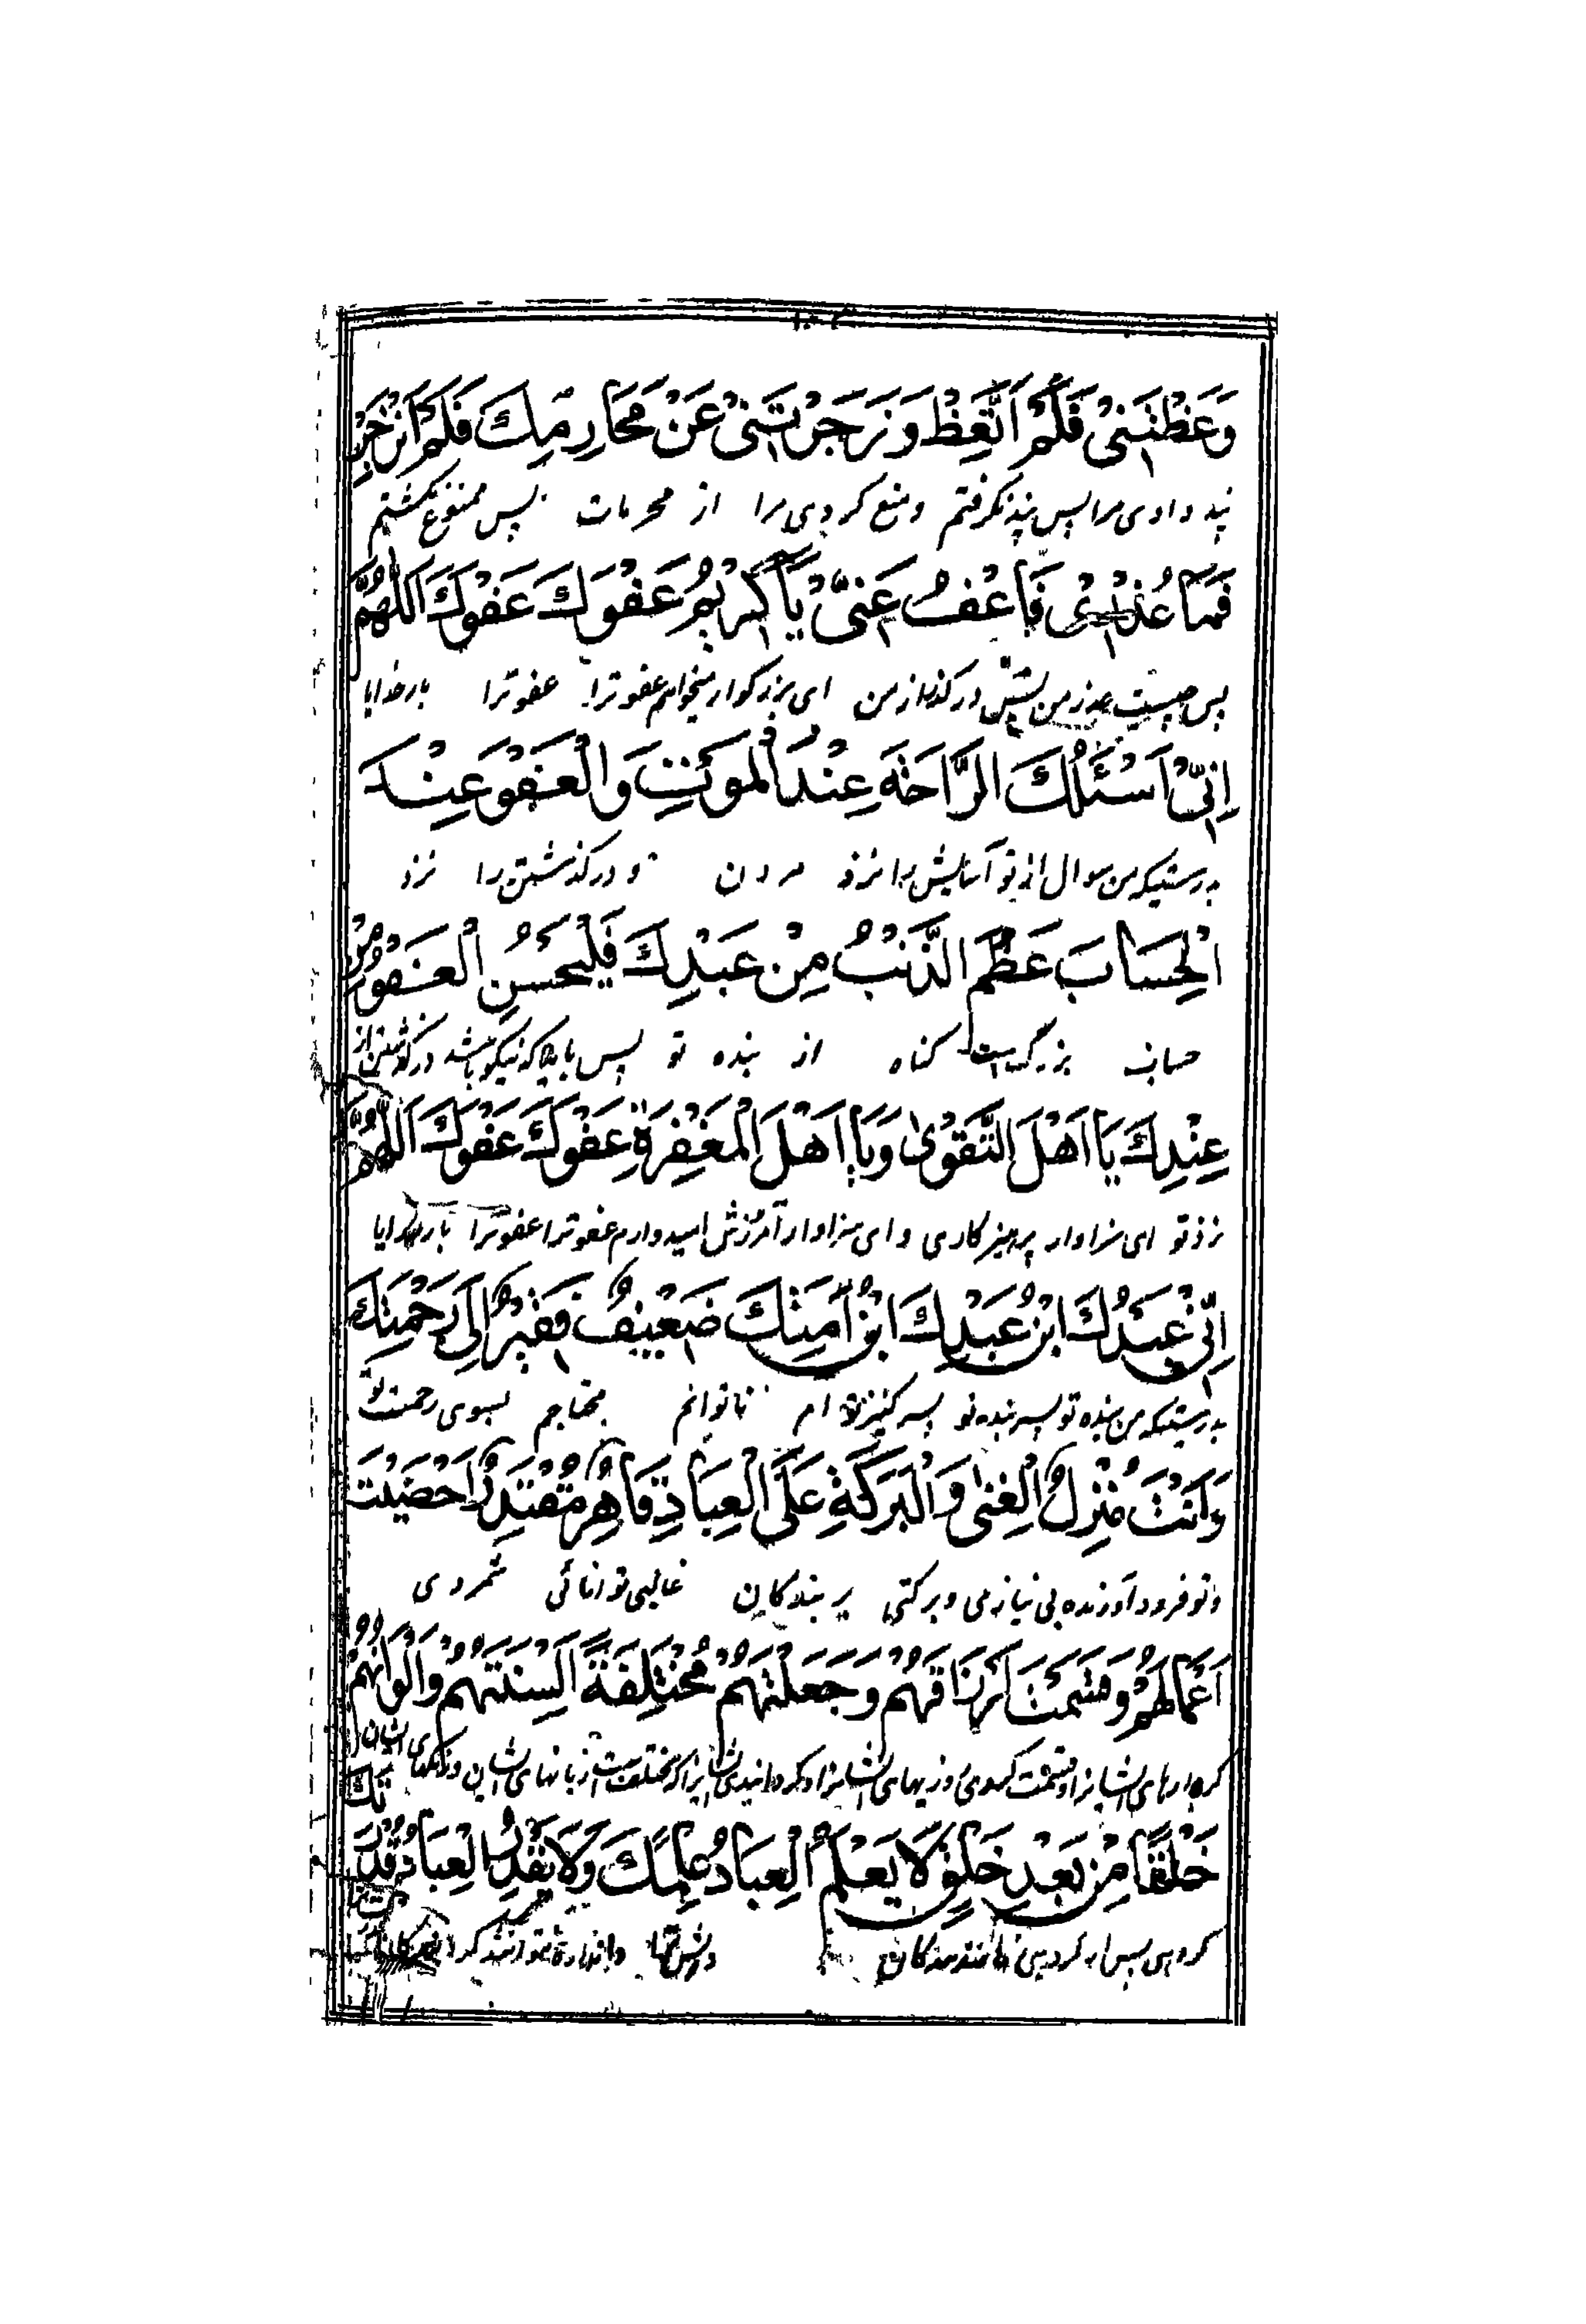 وَعَظْتَنِیْ فَلَمْ اَتَّعِظْ وَزَجَرْتَنِیْ عَنْ مَحَارِمِكَ فَلَمْ اَنْزَجِرْ
پند دادی مرا پس پند نگرفتم و منع کردی مرا از محرمات پس ممنوع نگشتم
فَمَا عُذْرِیْ فَاعْفُ عَنِّیْ یَا كَرِیْمُ عَفْوَكَ عَفْوَكَ اَللّٰهُمَّ
پس چیست عذر من پس درگذر از من ای بزرگوار میخواهم عفو ترا عفو ترا بار خدایا
اِنِّیْ اَسْئَلُكَ الرَّاحَةَ عِنْدَ الْمَوْتِ وَالْعَفْوَ عِنْدَ
بدرستیکه من سوال از تو آسایش را نزد مردن و درگذشتن را نزد
الْحِسَابَ عَظُمَ الذَّنْبُ مِنْ عَبْدِكَ فَلْیَحْسُنِ الْعَفْوُ مِنْ
حساب بزرگست گناه از بنده تو پس باید که نیکو باشد درگذشتن از
عِنْدِكَ یَا اَهْلَ التَّقْوٰی وَیَا اَهْلَ الْمَغْفِرَةِ عَفْوَكَ عَفْوَكَ اَللّٰهُمَّ
نزد تو ای سزاوار پرهیزکاری و ای سزاوار آمرزش امیدوارم عفو ترا عفو ترا بار خدایا
اِنِّیْ عَبْدُكَ ابْنُ عَبْدِكَ ابْنُ اَمَتِكَ ضَعِیْفٌ فَقِیْرٌ اِلٰی رَحْمَتِكَ
بدرستیکه من بنده تو پسر بنده تو پسر کنیز تو ام ناتوانم محتاجم بسوی رحمت تو
وَاَنْتَ مُنْزِلُ الْغِنٰی وَالْبَرَكَةِ عَلَی الْعِبَادِ قَاهِرٌ مُقْتَدِرٌ اَحْصَیْتَ
و تو فرود آورنده بی نیازی و برکتی بر بندگان غالبی توانائی شمردی
اَعْمَالَهُمْ وَقَسَمْتَ اَرْزَاقَهُمْ وَجَعَلْتَهُمْ مُخْتَلِفَةً اَلْسِنَتُهُمْ وَاَلْوَانُهُمْ
کردارهای ایشانرا و قسمت کردی روزیهای ایشانرا و گردانیدی ایشانرا که مختلف است زبانهای ایشان و رنگهای ایشان
خَلْقًا مِنْ بَعْدِ خَلْقٍ لَا یَعْلَمُ الْعِبَادُ عِلْمَكَ وَلَا یَقْدِرُ الْعِبَادُ قَدْرَتَكَ
گروهی پس از گروهی بندگان دانش ترا